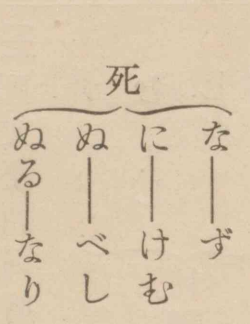 死
な―ず
に―けむ
ぬ―べし
ぬる―なり